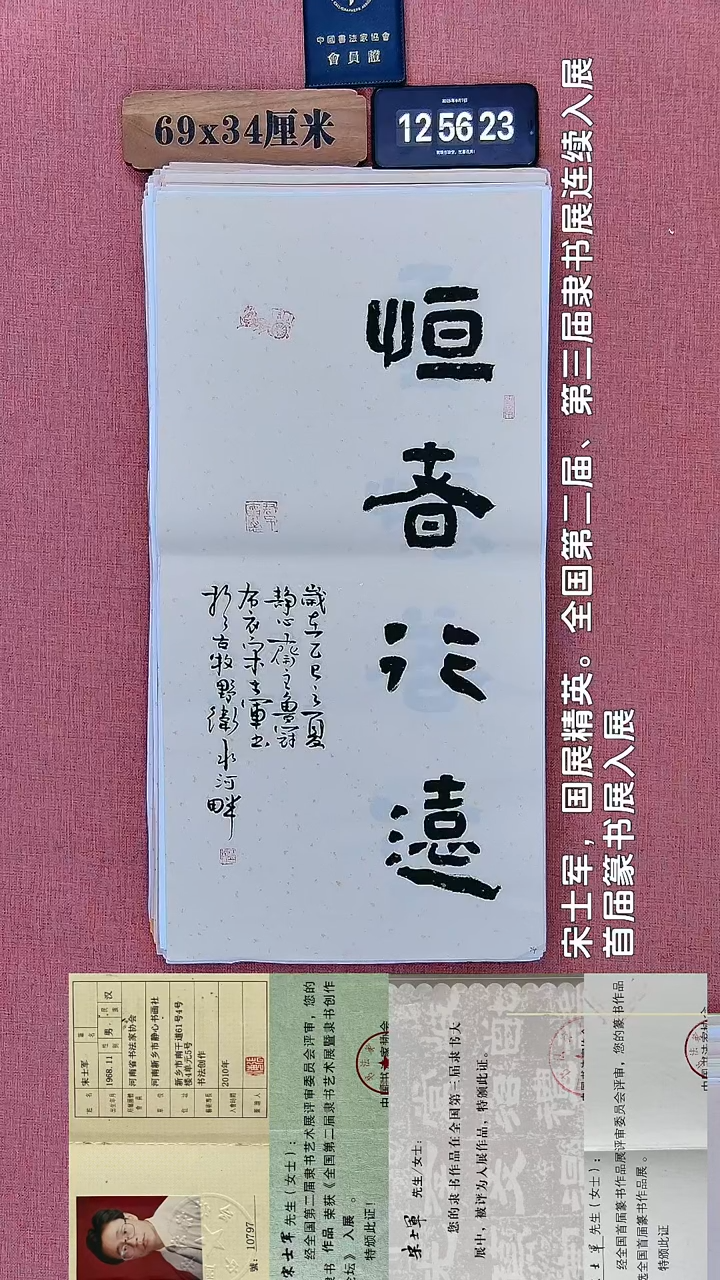 中國書法家協會
會員證
69x34厘米
12 56 23
恒者行遠
歲在乙巳之夏
静心齋主魯冠
布衣宋士軍書
於古牧野衛水河畔
宋士军，国展精英。全国第二届、第三届隶书展连续入展
首届篆书展入展
姓名 宋士军
1968.11 性别 男 民族 汉
河南省书法家协会
河南新乡市静心书画社
新乡市南干道61号4号
楼4单元5号
书法创作
2010年
號: 10797
宋士军 先生（女士）：
经全国第二届隶书艺术展评审委员会评审，您的
隶书 作品 荣获《全国第二届隶书艺术展暨隶书创作
论坛》 入展 。
特颁此证！
宋士军 先生/女士：
您的隶书作品在全国第三届隶书大
展中，被评为入展作品，特颁此证。
士军 先生（女士）：
经全国首届篆书作品展评审委员会评审，您的篆书作品
全国首届篆书作品展 。
特颁此证